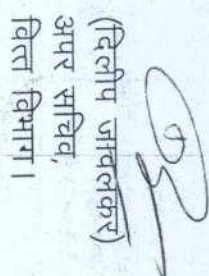 (दिलीप जावलकर)
अपर सचिव,
वित्त विभाग।